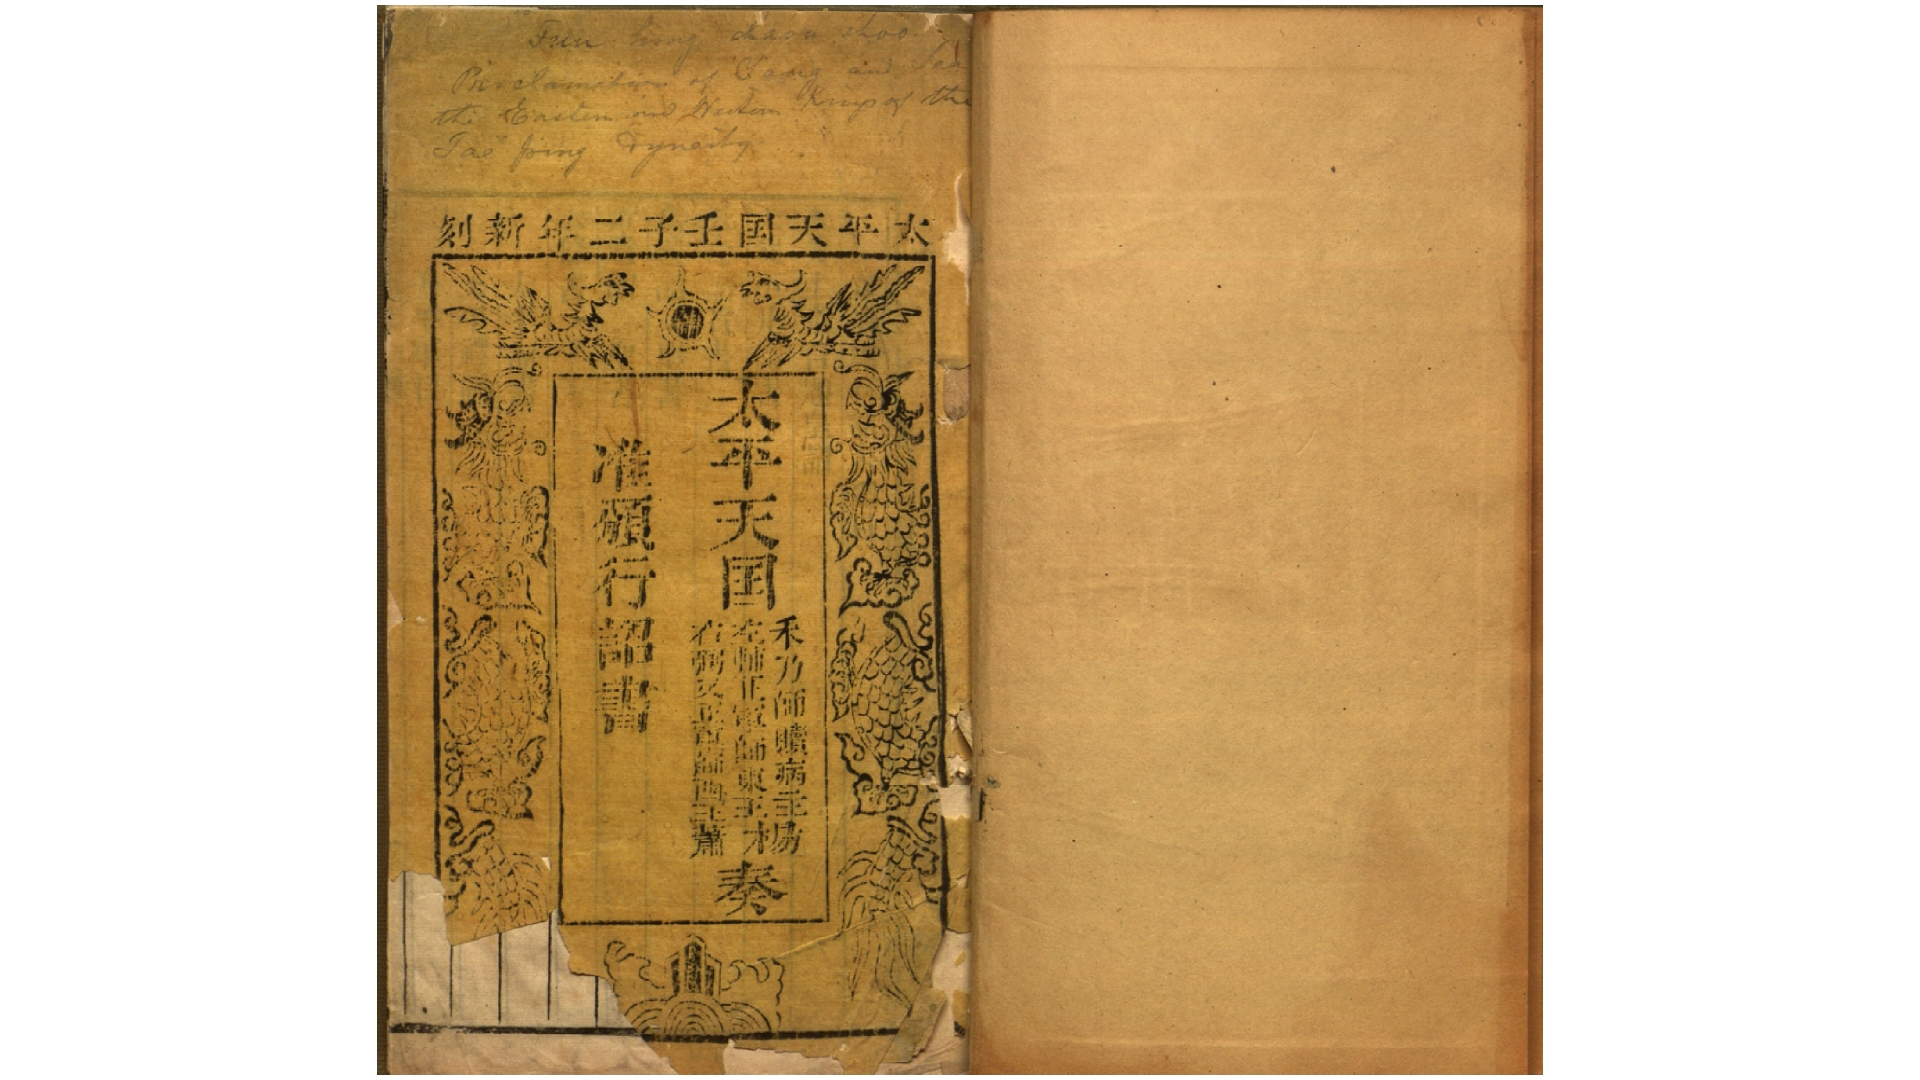 Fun hing chaou shoo
Proclamation of Yang and Sea
the Eastern and Western Kings of the
Tae ping Dynasty.
太平天国壬子二年新刻
太平天国
禾乃師贖病主
左輔正軍師東王楊
右弼又正軍師西王蕭
奏
准頒行詔書